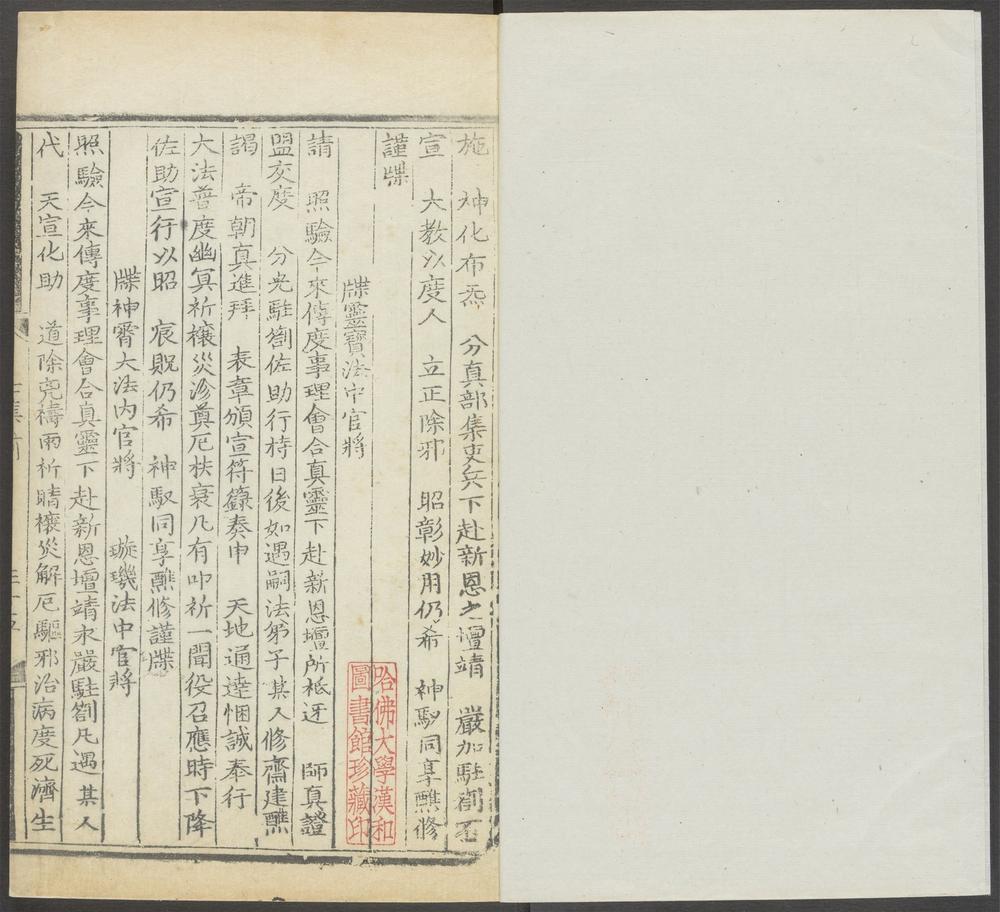 施 神化布炁 分真部集吏兵下赴新恩之壇靖 嚴加駐劄
宣 大教以度人 立正除邪 昭彰妙用仍希 神馭同享醮修
謹牒
牒靈寶法中官將
請 照驗今來傳度事理會合真靈下赴新恩壇所祗迓 師真證
盟交度 分光駐劄佐助行持日後如遇嗣法弟子某人修齋建醮
謁 帝朝真進拜 表章頒宣符籙奏申 天地通達悃誠奉行
大法普度幽冥祈禳災沴奠厄扶衰凡有叩祈一聞役召應時下降
佐助宣行以昭 宸貺仍希 神馭同享醮修謹牒
牒神霄大法內官將 璇璣法中官將
照驗今來傳度事理會合真靈下赴新恩壇靖永嚴駐劄凡遇某人
代 天宣化助 道除禱雨祈晴禳災解厄驅邪治病度死濟生
哈佛大學漢和
圖書館珍藏印